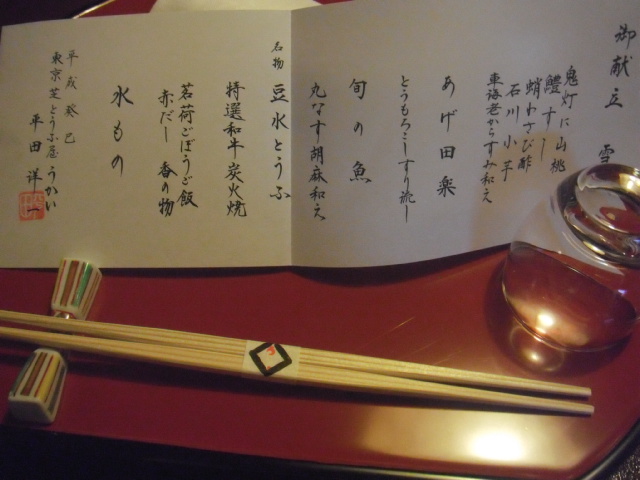 御献立 雪
鬼灯に山桃
鱧すし
蛸わさび酢
石川小芋
車海老からすみ和え
あげ田楽
とうもろこしすり流し
旬の魚
丸なす胡麻和え
名物 豆水とうふ
特選和牛炭火焼
茗荷ごぼうご飯
赤だし 香の物
水もの
平成癸巳
東京芝とうふ屋うかい
平田洋一